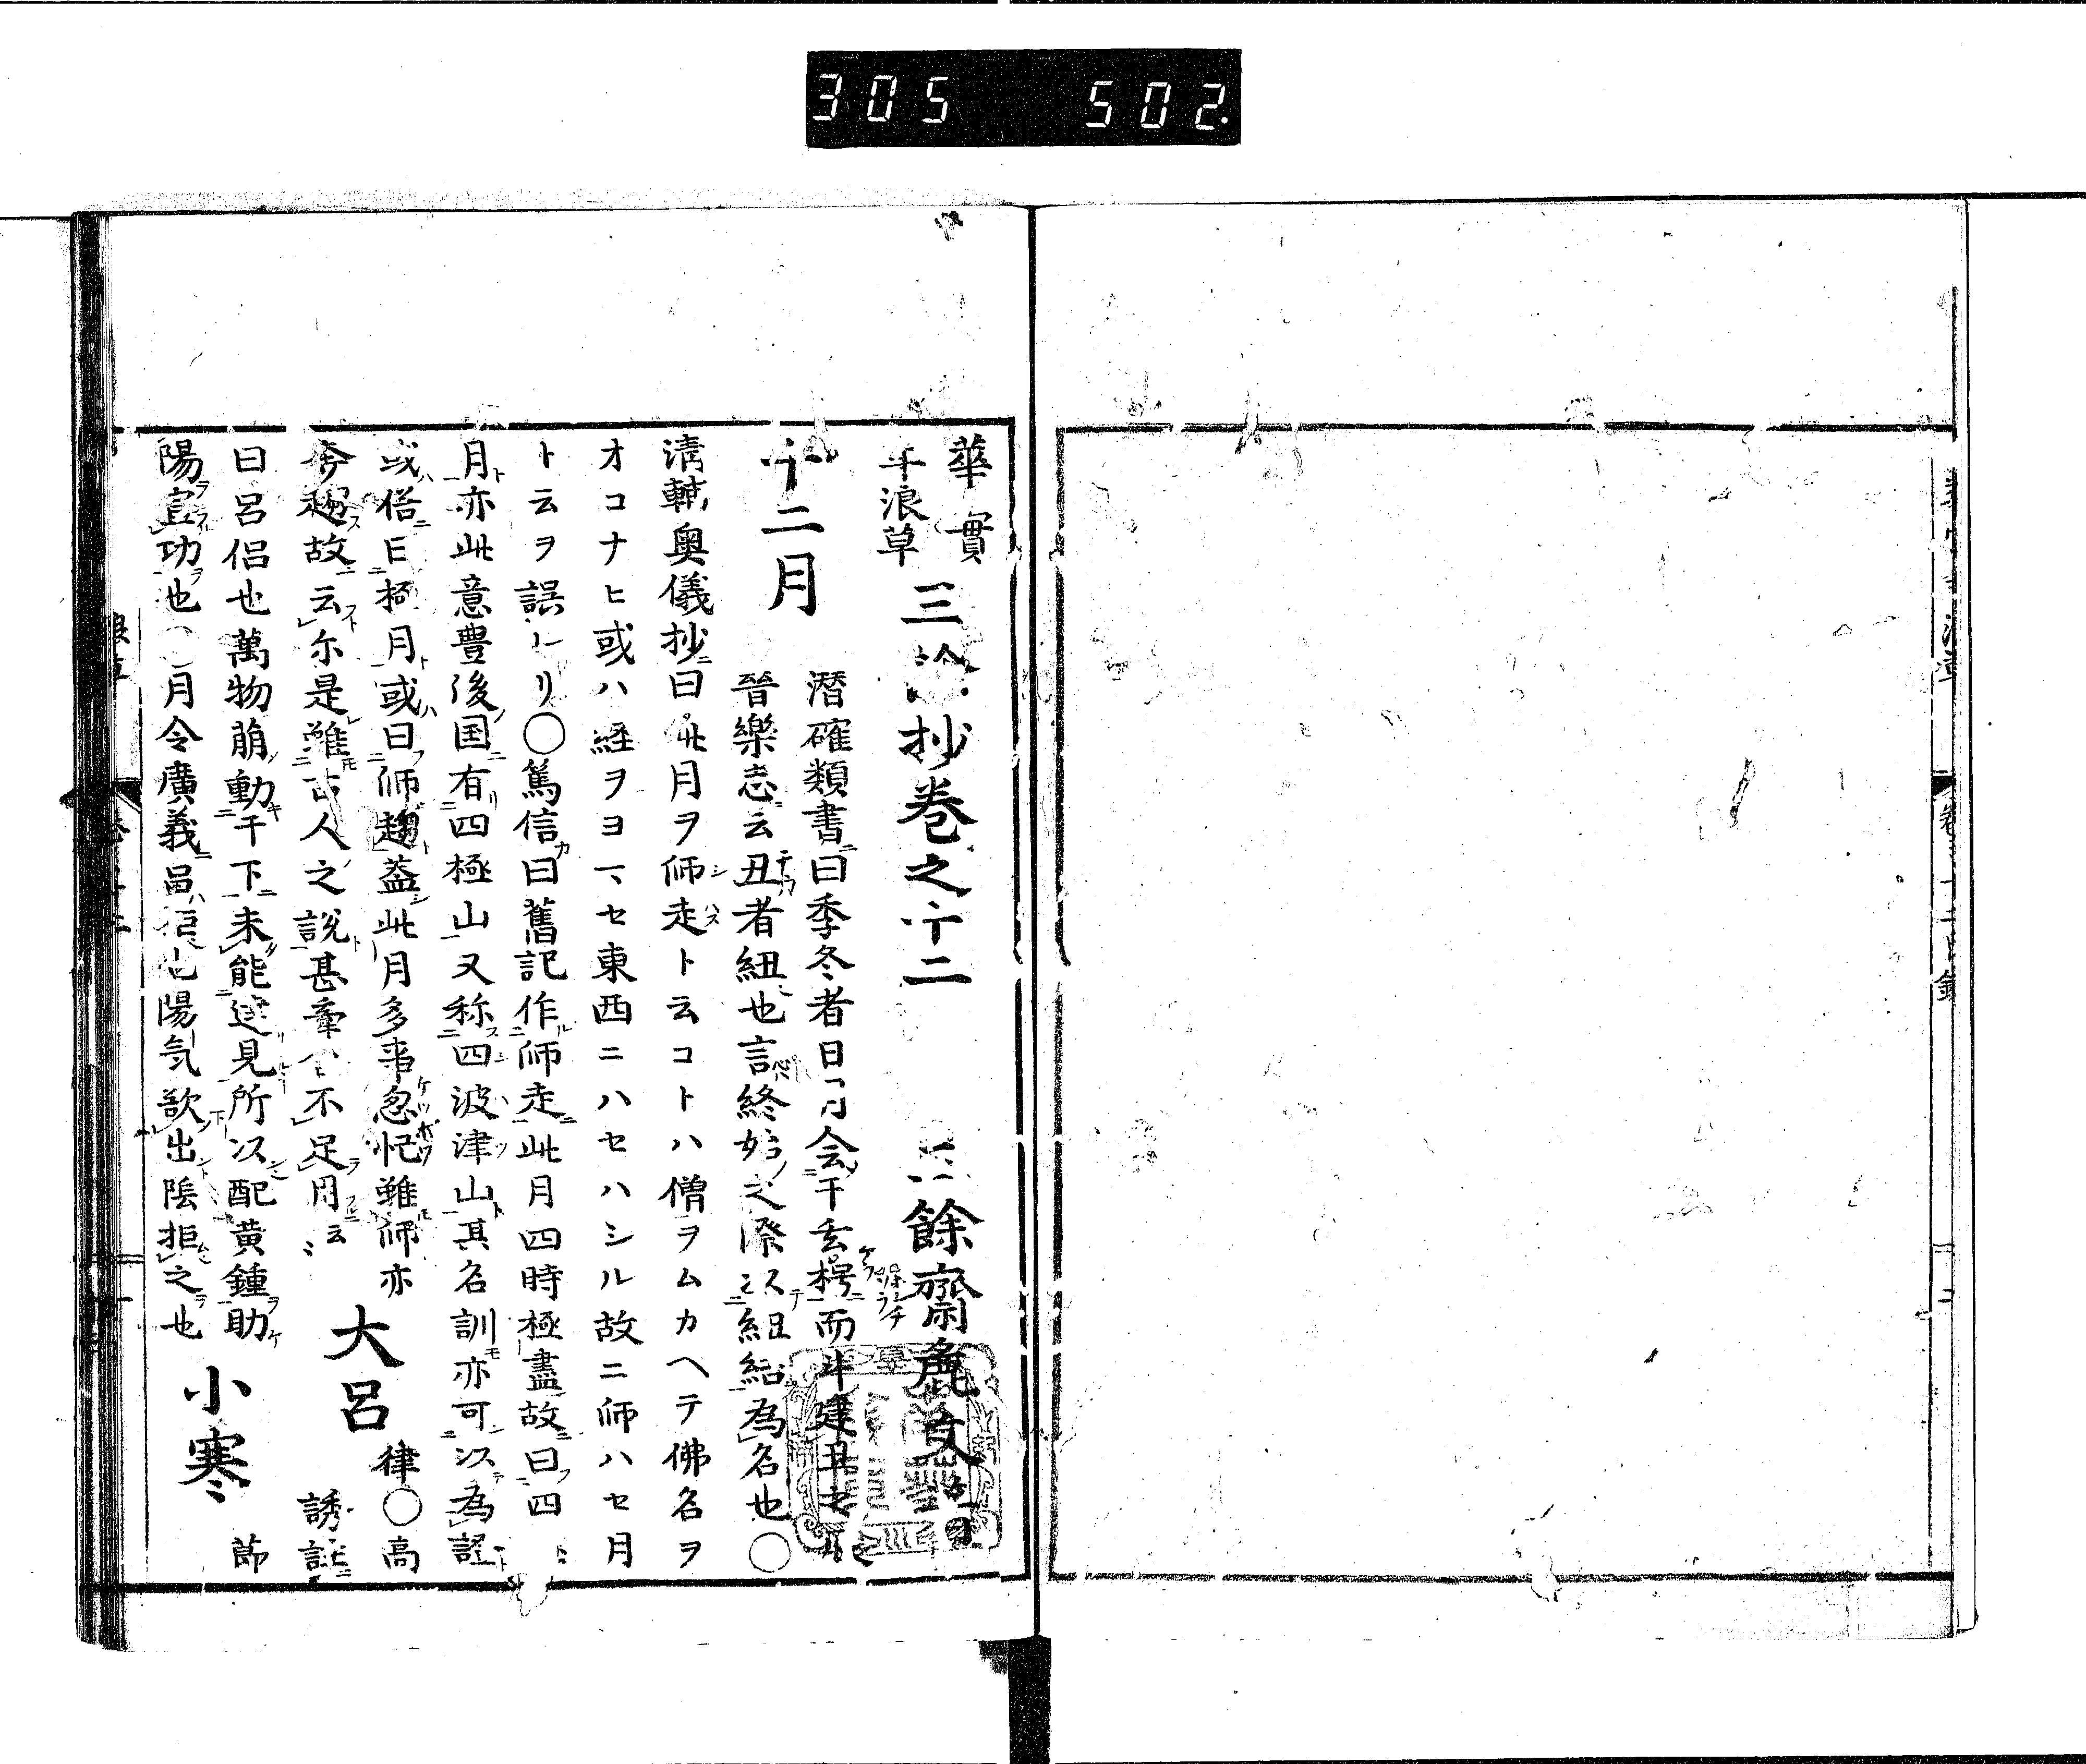 305 502
華實
年浪草
三餘抄巻之十二
三餘齋麁文
十二月
潛確類書曰季冬者日月会于玄枵而斗建丑之
晉樂志云丑者紐也言終始之際以紐結為名也○
清輔奥儀抄曰此月ヲ師走ト云コトハ僧ヲムカヘテ佛名ヲ
オコナヒ或ハ経ヲヨマセ東西ニハセハシル故ニ師ハセ月
ト云ヲ誤レリ○篤信曰舊記作師走此月四時極盡故曰四
月亦此意豊後国有四極山又称四波津山其名訓亦可以為證
或俗曰極月或曰師趨蓋此月多事怱忙雖師亦
奔趨故云尓是雖古人之説甚牽不足用云々
大呂
律○高
誘註
曰呂侣也萬物萠動于下未能達見所以配黄鍾助
陽宣功也○月令廣義呂拒也陽気欲出陰拒之也
小寒
節